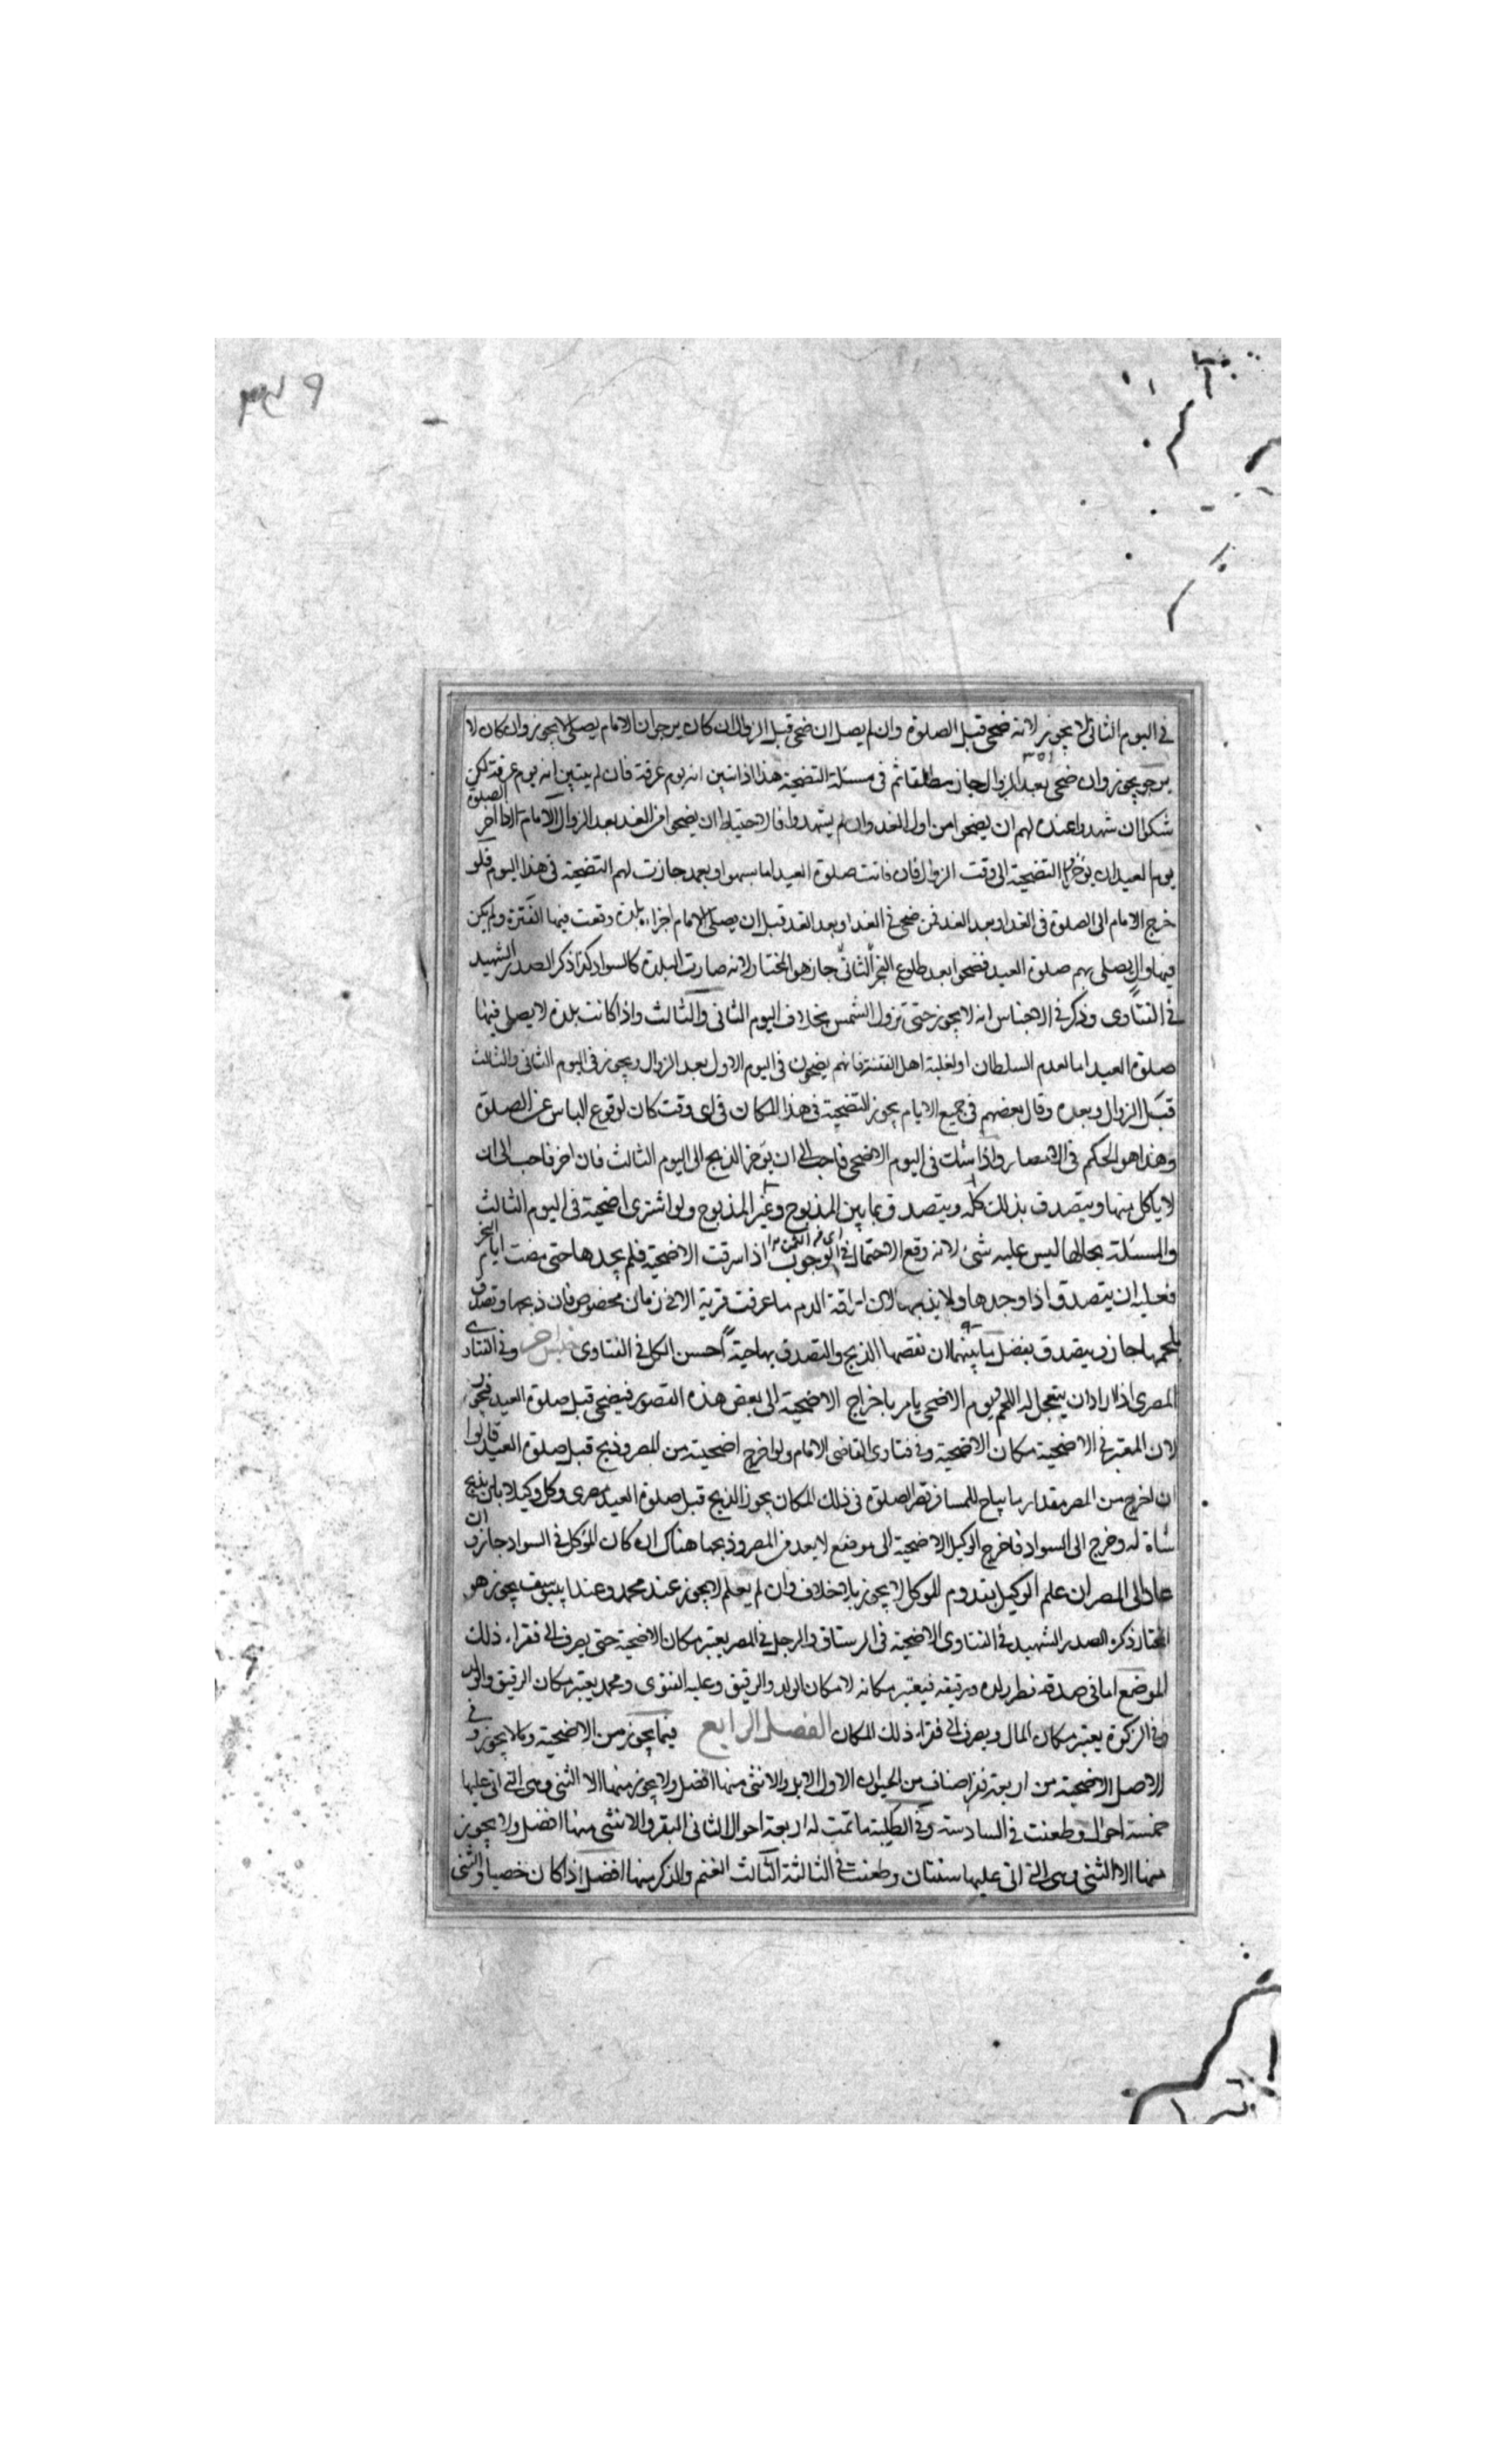 في اليوم الثاني لا يجوز لانه ضحى قبل الصلوة وان لم يصل ان ضحى قبل الزوال ان كان يرجو ان الامام يصلي لا يجوز وان كان لا
يرجو يجوز وان ضحى بعد الزوال جاز مطلقا ثم في مسئلة التضحية هذا اذا تبين انه يوم عرفة فان لم يتبين انه يوم عرفة لكن
شكوا ان شهدوا عنده لهم ان يضحوا من اول الغد وان لم يشهدوا فالاحتياط ان يضحوا من الغد بعد الزوال الامام اذا اخر الصلوة
يوم العيد ان يؤخروا التضحية الى وقت الزوال فان فاتت صلوة العيد اما بسهو او بعمد جازت لهم التضحية في هذا اليوم فلو
خرج الامام الى الصلوة في الغد او بعد الغد فمن ضحى في الغد او بعد الغد قبل ان يصلي الامام اجزاه بلدة وقعت فيها الفترة ولم يكن
فيها وال يصلي بهم صلوة العيد فضحوا بعد طلوع الفجر الثاني جاز هو المختار لانه صارت البلدة كالسواد كذا ذكر الصدر الشهيد
في الفتاوى وذكر في الاجناس انه لا يجوز حتى تزول الشمس بخلاف اليوم الثاني والثالث واذا كانت بلدة لا يصلي فيها
صلوة العيد اما لعدم السلطان او لغلبة اهل الفتنة فانهم يضحون في اليوم الاول بعد الزوال ويجوز في اليوم الثاني والثالث
قبل الزوال وبعده وقال بعضهم في جميع الايام يجوز التضحية في هذا المكان في اى وقت كان لوقوع الياس عن الصلوة
وهذا هو الحكم في الامصار واذا شك في اليوم الاضحى فاحب الى ان يؤخر الذبح الى اليوم الثالث فان اخر فاحب الى ان
لا ياكل منها ويتصدق بذلك كله ويتصدق بما بين المذبوح وغير المذبوح ولو اشترى اضحية في اليوم الثالث
والمسئلة بحالها ليس عليه شئ لانه وقع الاحتمال في الوجوب اذا سرقت الاضحية فلم يجدها حتى مضت ايام النحر
فعليه ان يتصدق اذا وجدها ولا يذبحها لان اراقة الدم ما عرفت قربة الا في زمان مخصوص فان ذبحها وتصدق
بلحمها جاز ويتصدق بفضل ما بينهما لان نقصها الذبح والتصدق بها حية احسن الكل في الفتاوى جنس اخر وفي الفتاوى
المصرى اذا اراد ان يتعجل له اللحم يوم الاضحى يامر باخراج الاضحية الى بعض هذه القصور فيضحي قبل صلوة العيد فيجوز
لان المعتبر في الاضحية مكان الاضحية وفي فتاوى القاضي الامام ولو اخرج اضحيته من المصر وذبح قبل صلوة العيد قالوا
ان اخرج من المصر مقدار ما يباح للمسافر قصر الصلوة في ذلك المكان يجوز الذبح قبل صلوة العيد مصرى وكل وكيلا بان يذبح
شاة له وخرج الى السواد فاخرج الوكيل الاضحية الى موضع لا يعد من المصر وذبحها هناك ان كان الموكل في السواد جاز وان
عاد الى المصر ان علم الوكيل بقدوم الموكل لا يجوز بلا خلاف وان لم يعلم لا يجوز عند محمد وعند ابي يوسف يجوز هو
المختار ذكره الصدر الشهيد في الفتاوى الاضحية في الرستاق والرجل في المصر يعتبر مكان الاضحية حتى يصرف الى فقراء ذلك
الموضع اما في صدقة فطر ولده ورقيقه فيعتبر مكانه لا مكان الولد والرقيق وعليه الفتوى ومحمد يعتبر مكان الرقيق والولد
وفي الزكوة يعتبر مكان المال ويصرف الى فقراء ذلك المكان الفصل الرابع فيما يجوز من الاضحية وما لا يجوز وفي
الاصل الاضحية من اربعة نفر اصناف من الحيوان الاول الابل والانثى منها افضل ولا يجوز منها الا الثنى وهى التى اتى عليها
خمسة احوال وطعنت في السادسة وفي الطلبة ما تمت له اربعة احوال الثاني البقر والانثى منها افضل ولا يجوز
منها الا الثنى وهى التى اتى عليها سنتان وطعنت في الثالثة الثالث الغنم والذكر منها افضل اذا كان خصيا والثنى